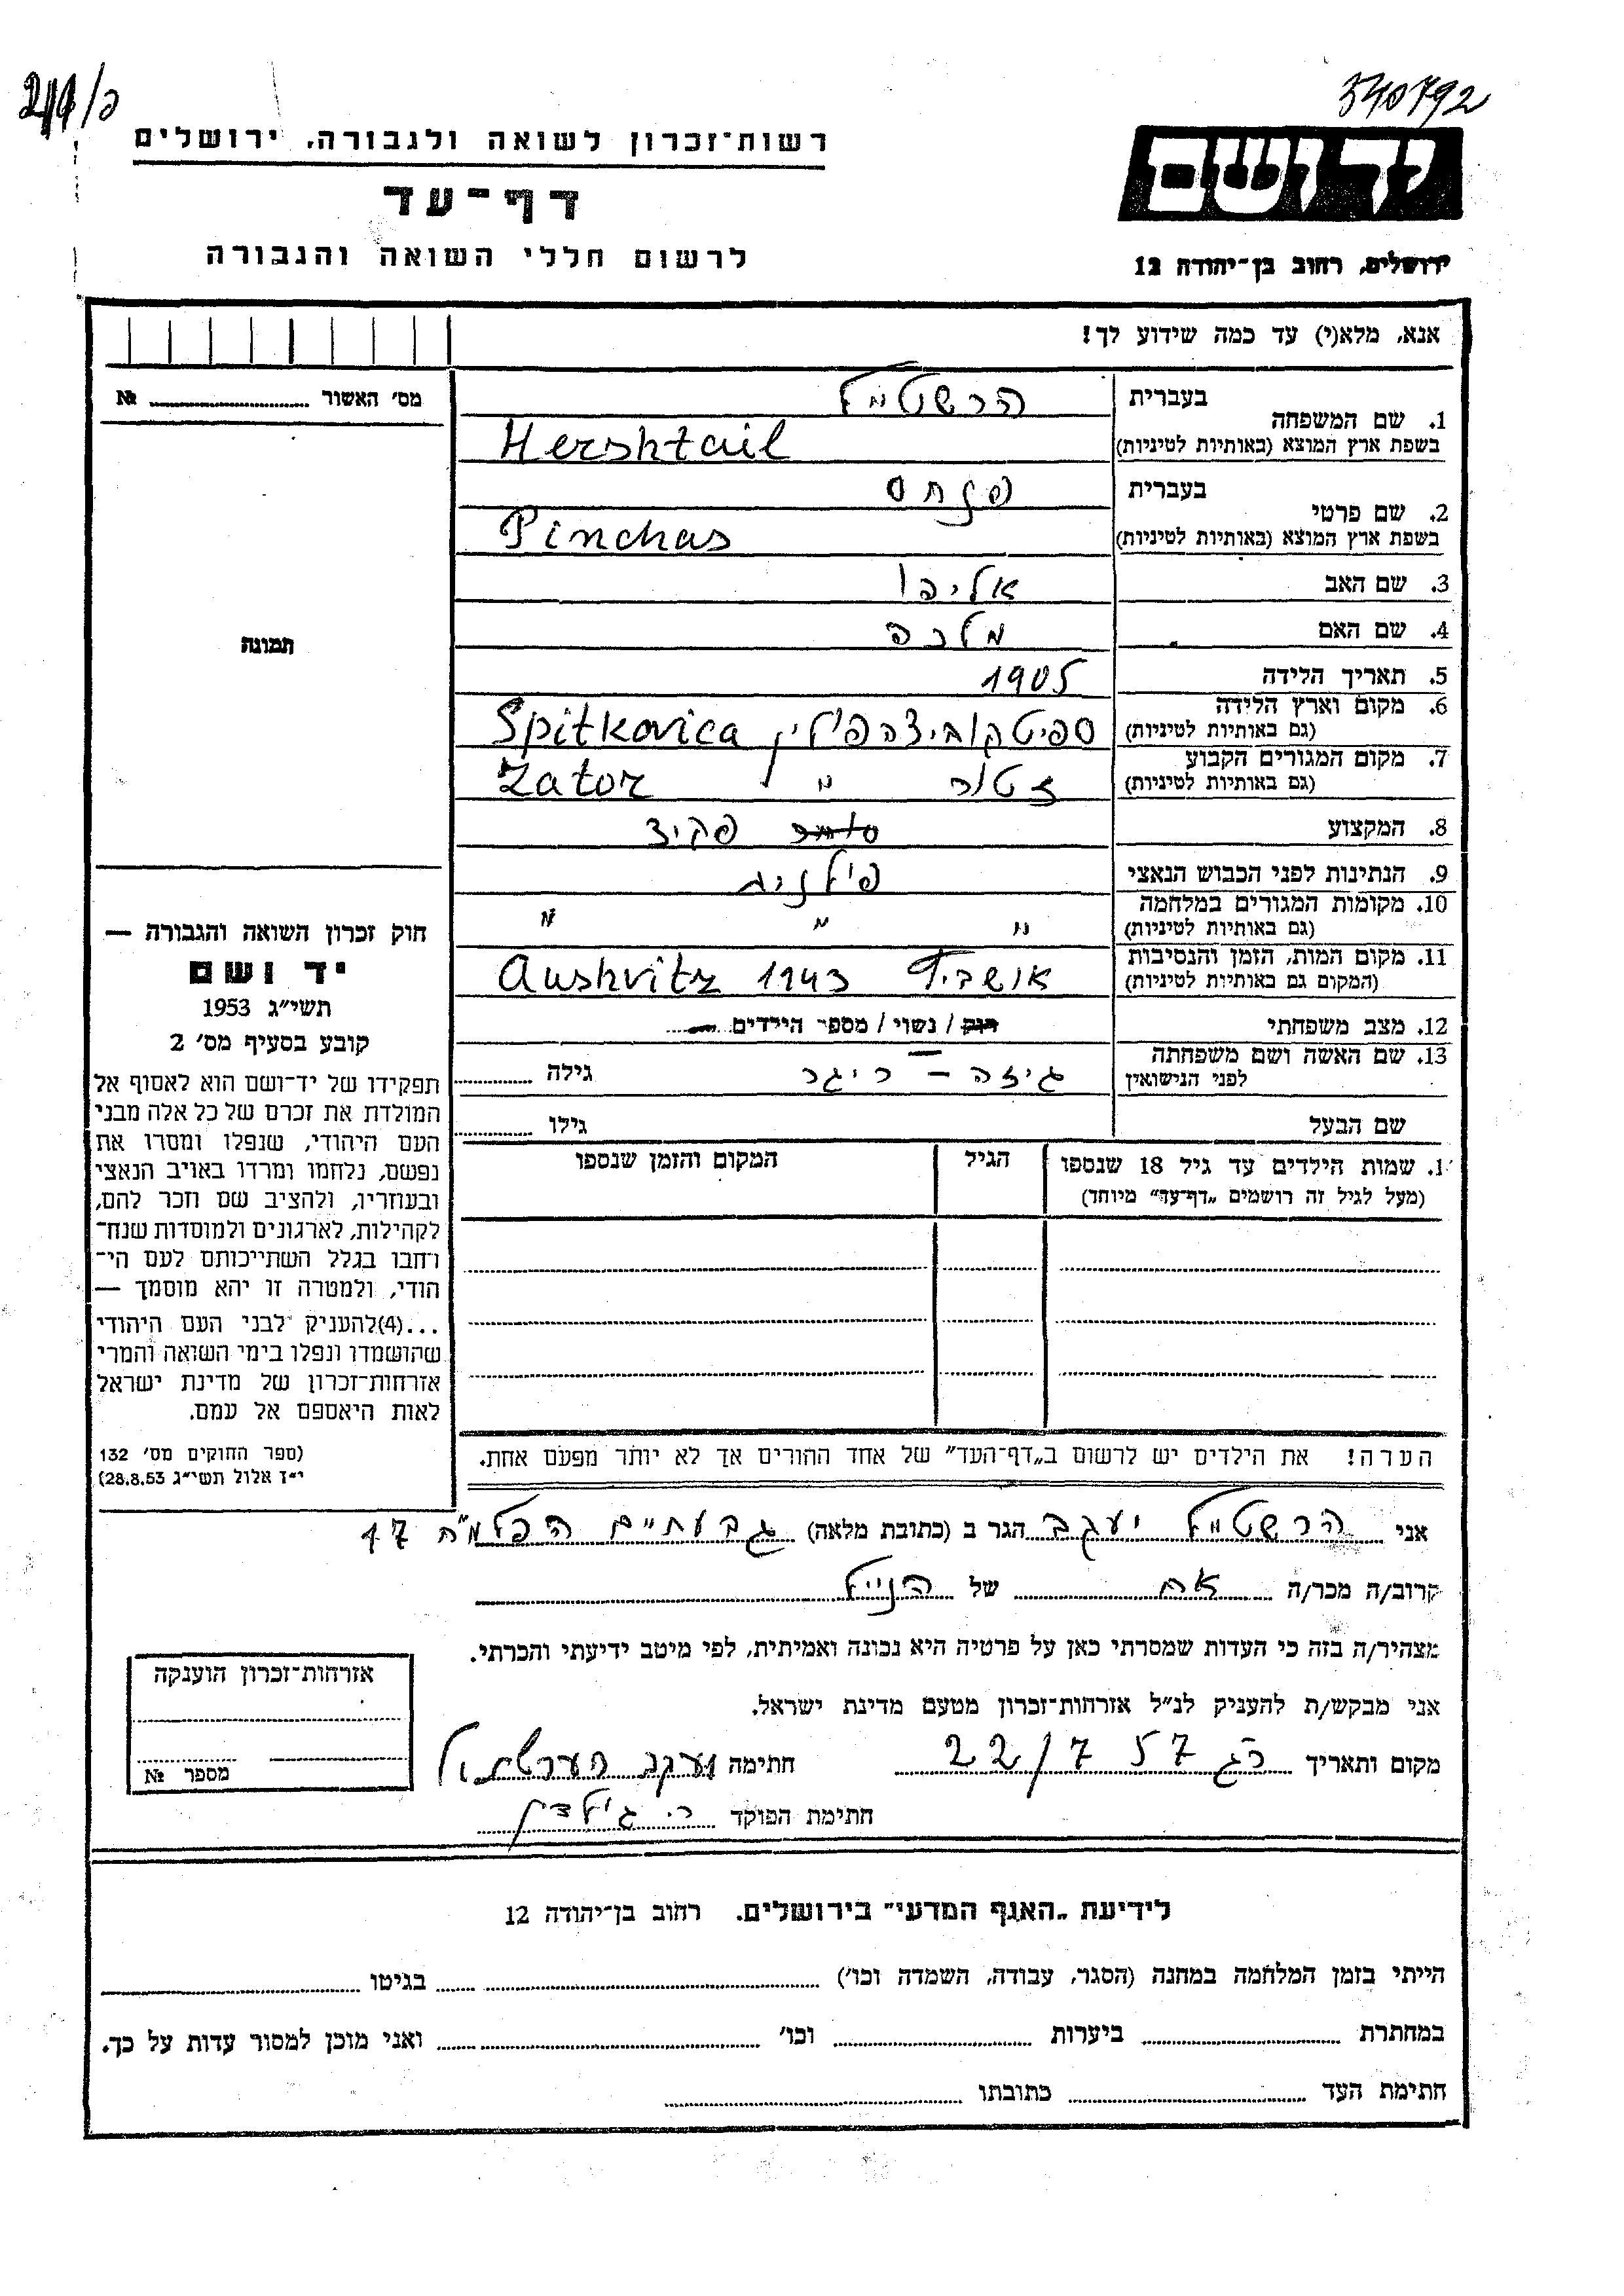 340792
רשות־זכרון לשואה ולגבורה, ירושלים
דף־עד
לרשום חללי השואה והגבורה
יד ושם
ירושלים, רחוב בן־יהודה 12
אנא, מלא(י) עד כמה שידוע לך!
מס׳ האשור № 
1. שם המשפחה
בעברית הרשטיל
בשפת ארץ המוצא (באותיות לטיניות) Hershtail
2. שם פרטי
בעברית פנחס
בשפת ארץ המוצא (באותיות לטיניות) Pinchas
3. שם האב אליהו
4. שם האם מלכה
5. תאריך הלידה 1905
6. מקום וארץ הלידה (גם באותיות לטיניות) ספיטקוביצה פולין Spitkovica
7. מקום המגורים הקבוע (גם באותיות לטיניות) זטור " Zator
8. המקצוע סוחר פקיד
9. הנתינות לפני הכבוש הנאצי פולנית
10. מקומות המגורים במלחמה (גם באותיות לטיניות) " " "
11. מקום המות, הזמן והנסיבות (המקום גם באותיות לטיניות) אושביץ 1943 Aushvitz
12. מצב משפחתי רוק / נשוי / מספר הילדים
13. שם האשה ושם משפחתה לפני הנישואין גיזה – ריגר גילה
שם הבעל גילו
שמות הילדים עד גיל 18 שנספו
(מעל לגיל זה רושמים „דף־עד” מיוחד)
הגיל
המקום והזמן שנספו
תמונה
חוק זכרון השואה והגבורה —
יד ושם
תשי״ג 1953
קובע בסעיף מס׳ 2
תפקידו של יד־ושם הוא לאסוף אל
המולדת את זכרם של כל אלה מבני
העם היהודי, שנפלו ומסרו את
נפשם, נלחמו ומרדו באויב הנאצי
ובעוזריו, ולהציב שם וזכר להם,
לקהילות, לארגונים ולמוסדות שנח־
רחבו בגלל השתייכותם לעם הי־
הודי, ולמטרה זו יהא מוסמך —
...(4)להעניק לבני העם היהודי
שהושמדו ונפלו בימי השואה והמרי
אזרחות־זכרון של מדינת ישראל
לאות היאספם אל עמם.
(ספר החוקים מס׳ 132
י״ז אלול תשי״ג 28.8.53)
הערה! את הילדים יש לרשום ב„דף־העד” של אחד ההורים אך לא יותר מפעם אחת.
אני הרשטיל יעקב הגר ב (כתובת מלאה) גבעתיים הפלמ״ח 17
קרוב/ה מכר/ה אח של הנ״ל
מצהיר/ה בזה כי העדות שמסרתי כאן על פרטיה היא נכונה ואמיתית, לפי מיטב ידיעתי והכרתי.
אני מבקש/ת להעניק לנ״ל אזרחות־זכרון מטעם מדינת ישראל.
מקום ותאריך ר״ג 22/7 57 חתימה
חתימת הפוקד
אזרחות־זכרון הוענקה
מספר №
לידיעת „האגף המדעי” בירושלים. רחוב בן־יהודה 12
הייתי בזמן המלחמה במחנה (הסגר, עבודה, השמדה וכו׳) בגיטו
במחתרת ביערות וכו׳ ואני מוכן למסור עדות על כך.
חתימת העד כתובתו